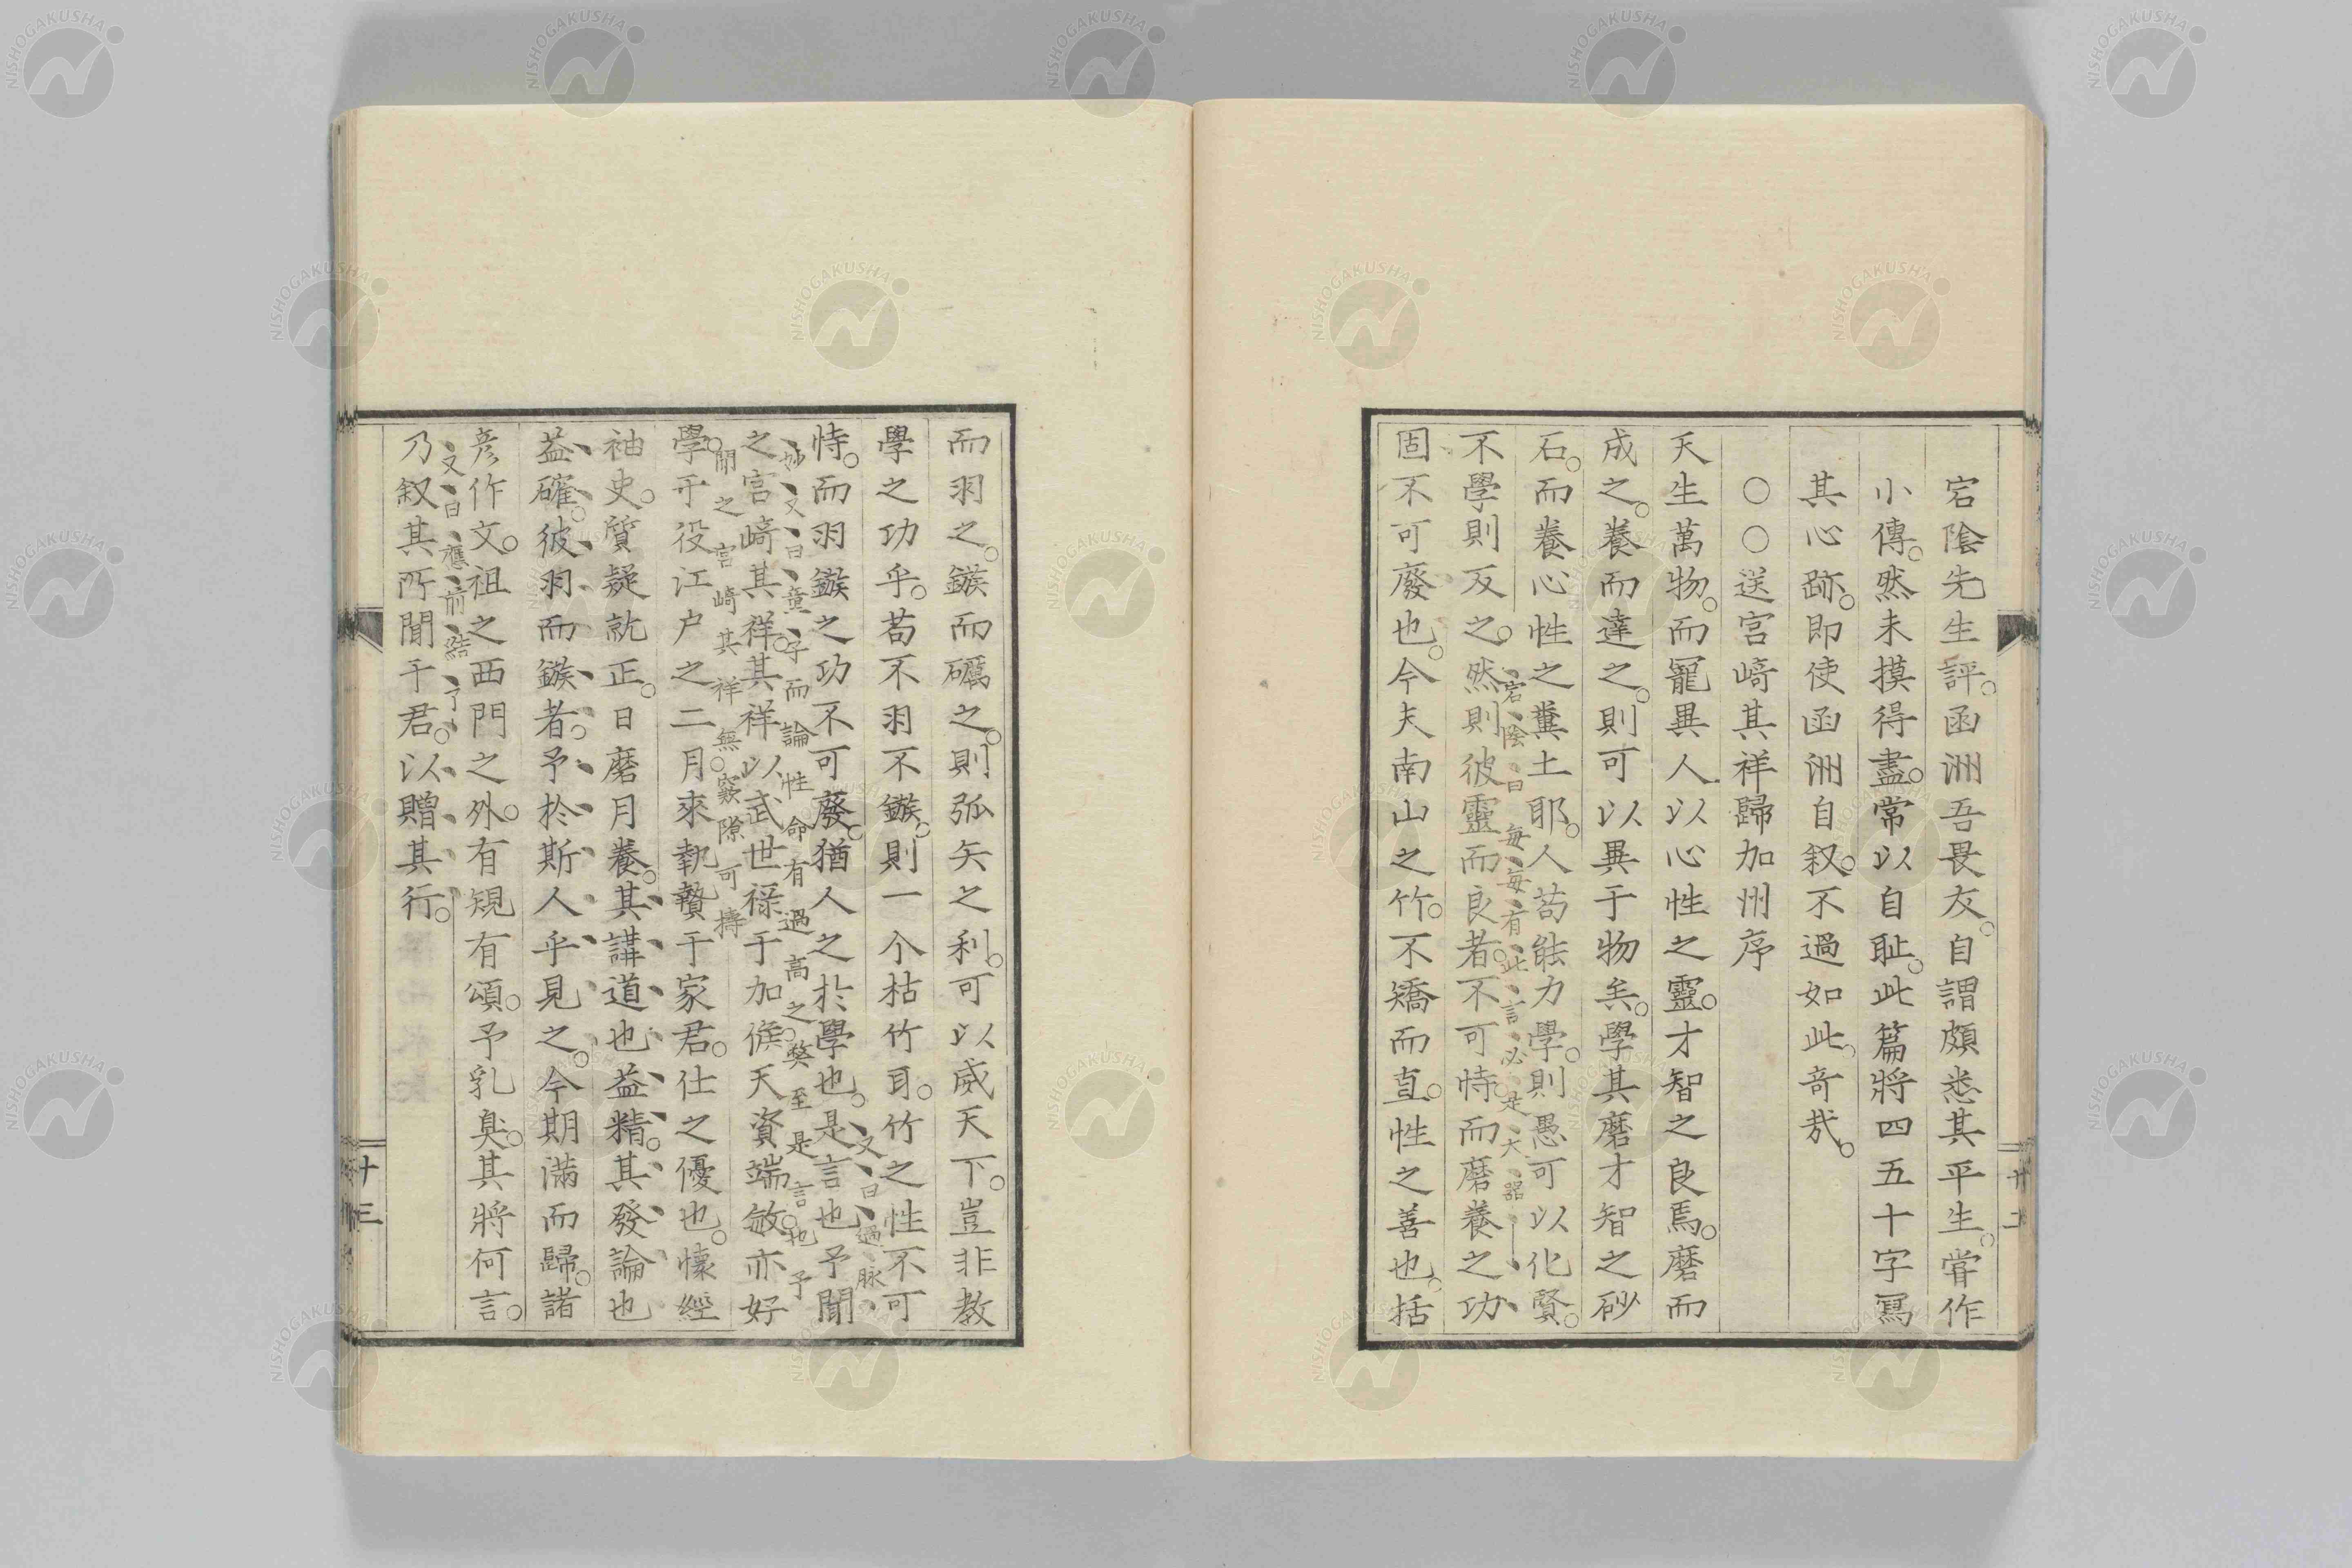 宕陰先生評。函洲吾畏友。自謂頗悉其平生。甞作
小傳。然未摸得盡。常以自耻。此篇將四五十字寫
其心跡。即使函洲自叙。不過如此。奇哉。
○○送宮﨑其祥歸加州序
天生萬物。而寵異人以心性之靈。才智之良焉。磨而
成之。養而達之。則可以異于物矣。學其磨才智之砂
石。而養心性之糞土耶。人苟能力學。則愚可以化賢。
不學則反之。然則彼靈而良者。不可恃。而磨養之功
宕陰曰每每有此言必是大器
固不可廢也。今夫南山之竹。不矯而直。性之善也。括
廿二
而羽之。鏃而礪之。則弧矢之利。可以威天下。豈非教
學之功乎。苟不羽不鏃。則一个枯竹耳。竹之性不可
又曰過脉
恃。而羽鏃之功不可廢。猶人之於學也。是言也予聞
妙又曰童子而論性命有過高之獘至是言也予
之宮﨑其祥。其祥以武世禄于加侯。天資端敏亦好
聞之宮﨑其祥無窾隙可擣
學。于役江户之二月。來執贄于家君。仕之優也。懷經
袖史。質疑就正。日磨月養。其講道也益精。其發論也
益確。彼羽而鏃者。予於斯人乎見之。今期滿而歸。諸
彦作文。祖之西門之外。有規有頌。予乳臭。其將何言。
又曰應前結了
乃叙其所聞于君。以贈其行。
十三
NISHOGAKUSHA